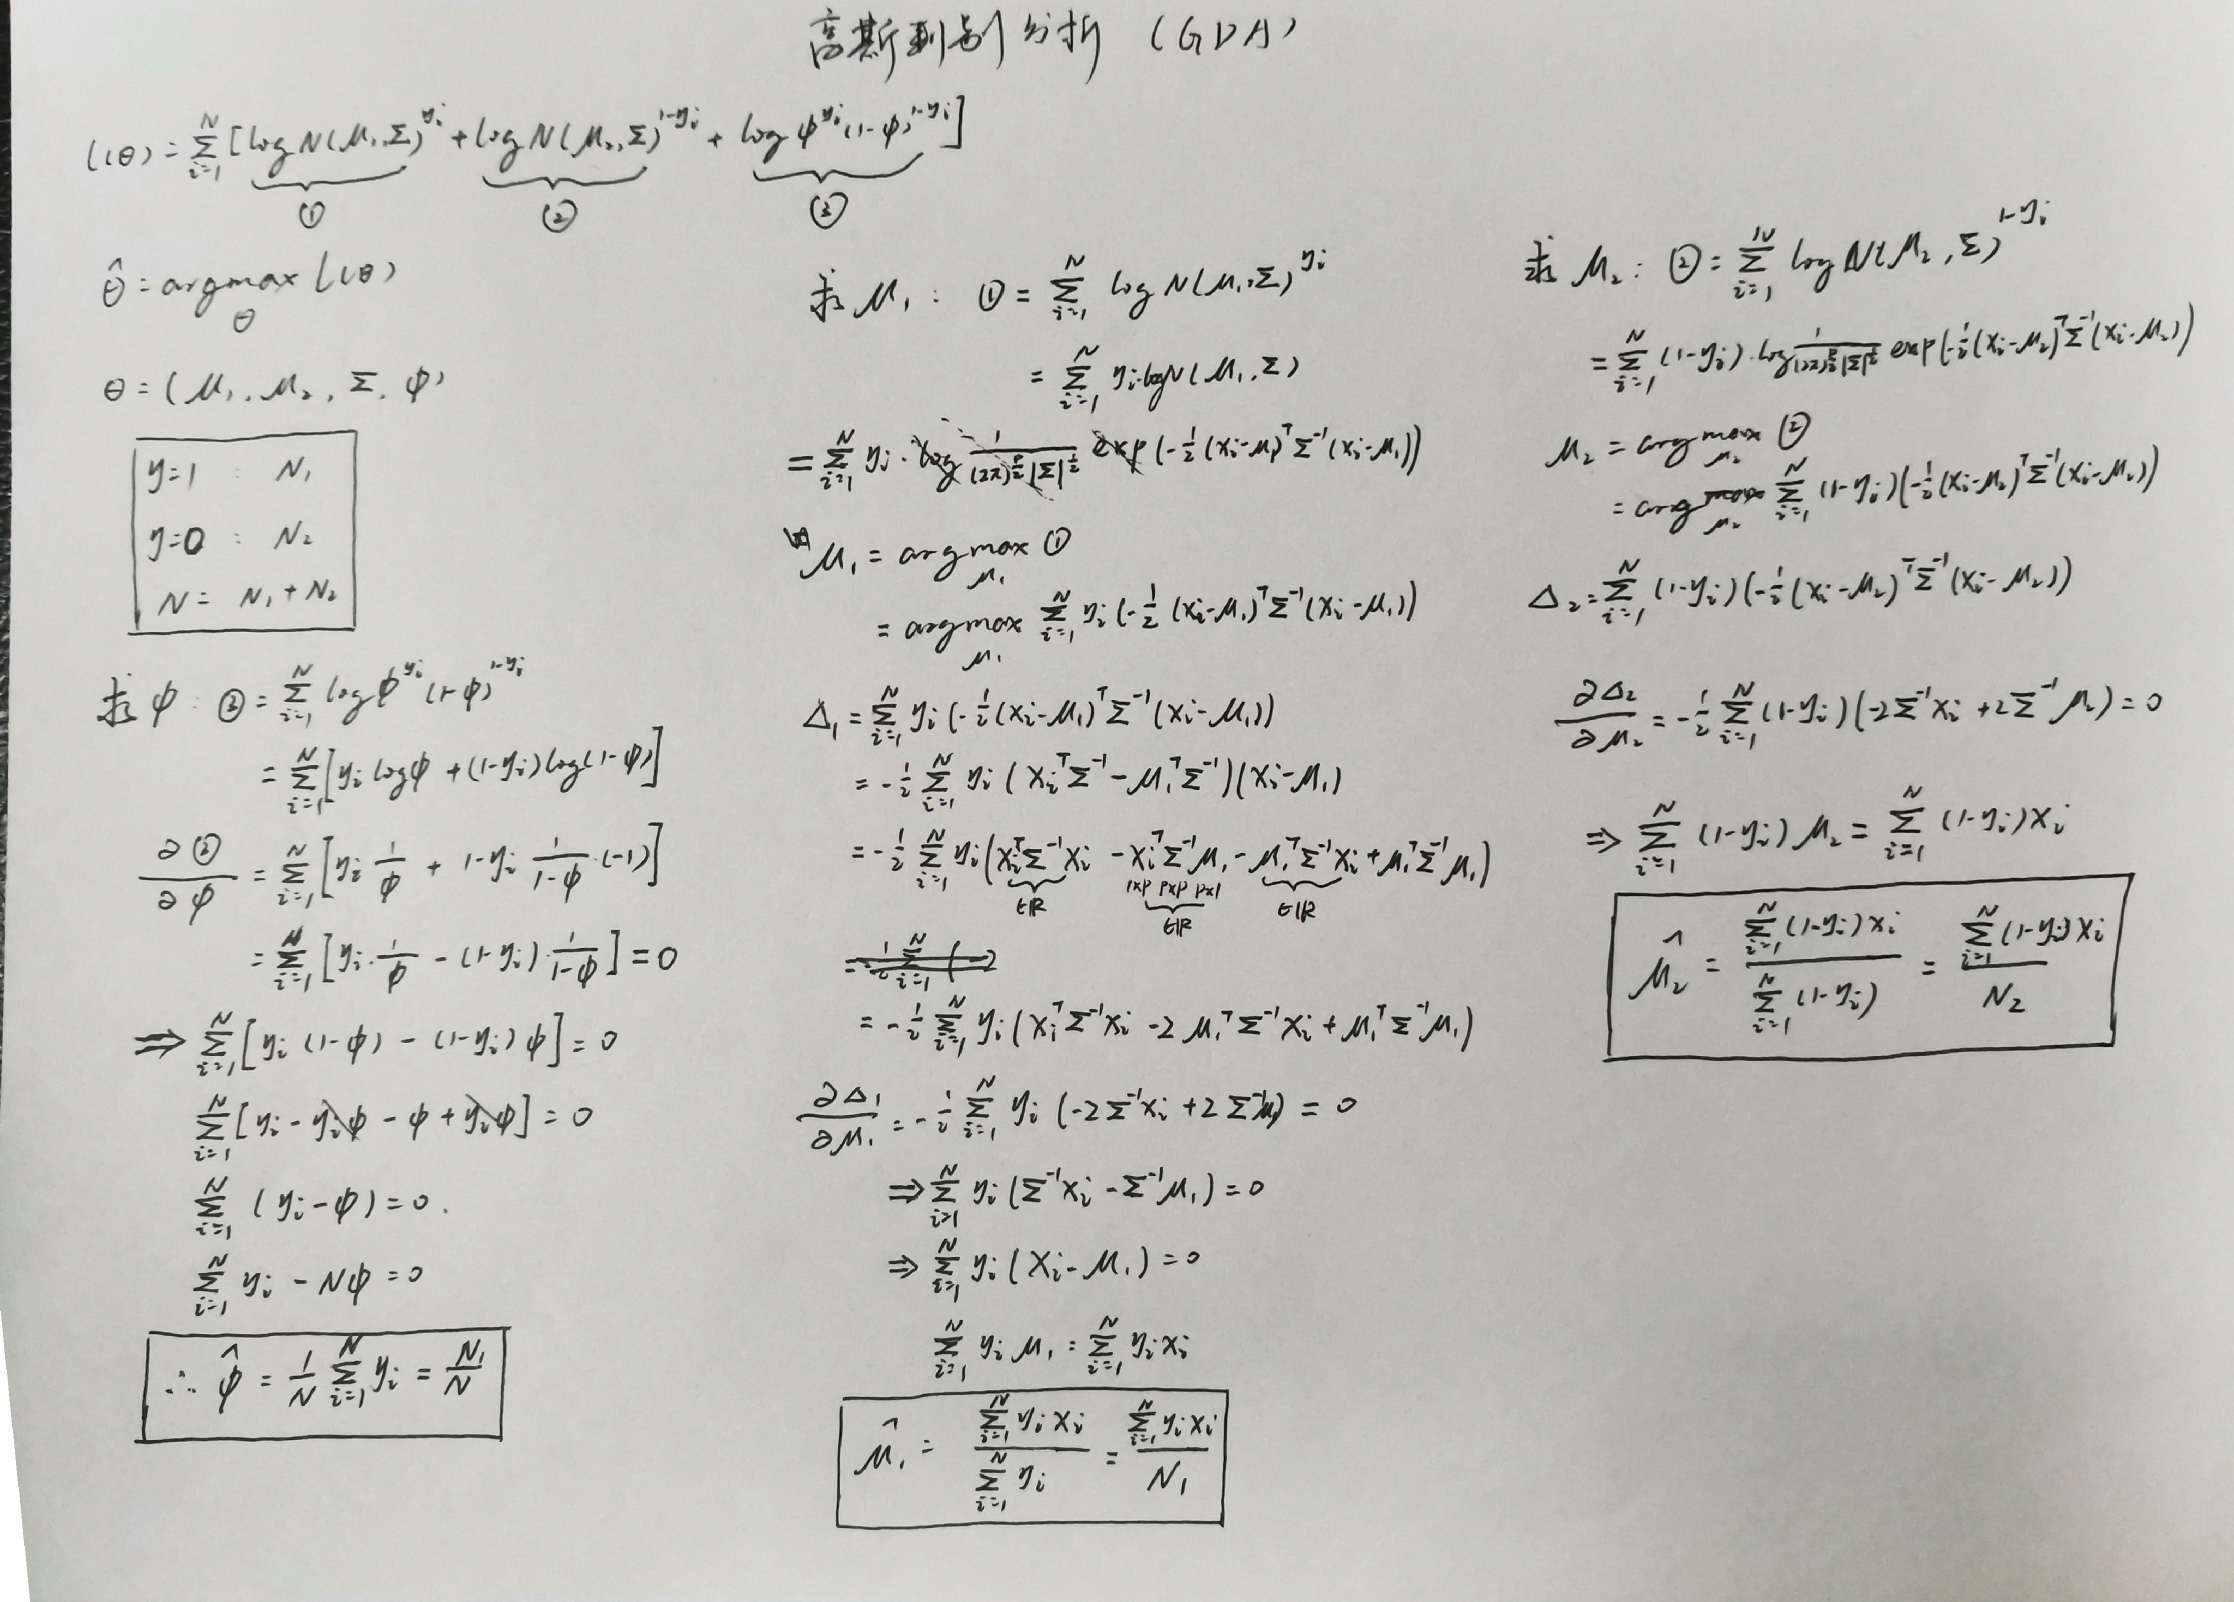 高斯判别分析 (GDA)
l(θ) = Σ_{i=1}^{N} [log N(μ₁,Σ)^{y_i} + log N(μ₂,Σ)^{1-y_i} + log φ^{y_i}(1-φ)^{1-y_i}]
① ② ③
θ̂ = argmax_θ l(θ)
θ = (μ₁, μ₂, Σ, φ)
y=1 : N₁
y=0 : N₂
N = N₁+N₂
求 φ : ③ = Σ_{i=1}^{N} log φ^{y_i} (1-φ)^{1-y_i}
= Σ_{i=1}^{N} [y_i log φ + (1-y_i) log(1-φ)]
∂③/∂φ = Σ_{i=1}^{N} [y_i 1/φ + 1-y_i 1/(1-φ)·(-1)]
= Σ_{i=1}^{N} [y_i · 1/φ - (1-y_i) · 1/(1-φ)] = 0
⇒ Σ_{i=1}^{N} [y_i (1-φ) - (1-y_i) φ] = 0
Σ_{i=1}^{N} [y_i - y_iφ - φ + y_iφ] = 0
Σ_{i=1}^{N} (y_i - φ) = 0.
Σ_{i=1}^{N} y_i - Nφ = 0
∴ φ̂ = 1/N Σ_{i=1}^{N} y_i = N₁/N
求 μ₁ : ① = Σ_{i=1}^{N} log N(μ₁,Σ)^{y_i}
= Σ_{i=1}^{N} y_i·log N(μ₁,Σ)
= Σ_{i=1}^{N} y_i · log 1/((2π)^{p/2}|Σ|^{1/2}) exp(-1/2 (x_i-μ₁)^T Σ^{-1} (x_i-μ₁))
μ₁ = argmax_{μ₁} ①
= argmax_{μ₁} Σ_{i=1}^{N} y_i (-1/2 (x_i-μ₁)^T Σ^{-1} (x_i-μ₁))
Δ₁ = Σ_{i=1}^{N} y_i (-1/2 (x_i-μ₁)^T Σ^{-1} (x_i-μ₁))
= -1/2 Σ_{i=1}^{N} y_i (x_i^T Σ^{-1} - μ₁^T Σ^{-1})(x_i-μ₁)
= -1/2 Σ_{i=1}^{N} y_i (x_i^T Σ^{-1} x_i - x_i^T Σ^{-1} μ₁ - μ₁^T Σ^{-1} x_i + μ₁^T Σ^{-1} μ₁)
1×p p×p p×1
∈ℝ ∈ℝ ∈ℝ
= -1/2 Σ_{i=1}^{N} y_i (x_i^T Σ^{-1} x_i - 2 μ₁^T Σ^{-1} x_i + μ₁^T Σ^{-1} μ₁)
∂Δ₁/∂μ₁ = -1/2 Σ_{i=1}^{N} y_i (-2 Σ^{-1} x_i + 2 Σ^{-1} μ₁) = 0
⇒ Σ_{i=1}^{N} y_i (Σ^{-1} x_i - Σ^{-1} μ₁) = 0
⇒ Σ_{i=1}^{N} y_i (x_i - μ₁) = 0
Σ_{i=1}^{N} y_i μ₁ = Σ_{i=1}^{N} y_i x_i
μ̂₁ = Σ_{i=1}^{N} y_i x_i / Σ_{i=1}^{N} y_i = Σ_{i=1}^{N} y_i x_i / N₁
求 μ₂ : ② = Σ_{i=1}^{N} log N(μ₂,Σ)^{1-y_i}
= Σ_{i=1}^{N} (1-y_i)·log 1/((2π)^{p/2}|Σ|^{1/2}) exp(-1/2 (x_i-μ₂)^T Σ^{-1} (x_i-μ₂))
μ₂ = argmax_{μ₂} ②
= argmax_{μ₂} Σ_{i=1}^{N} (1-y_i)(-1/2 (x_i-μ₂)^T Σ^{-1} (x_i-μ₂))
Δ₂ = Σ_{i=1}^{N} (1-y_i)(-1/2 (x_i-μ₂)^T Σ^{-1} (x_i-μ₂))
∂Δ₂/∂μ₂ = -1/2 Σ_{i=1}^{N} (1-y_i)(-2Σ^{-1} x_i + 2Σ^{-1} μ₂) = 0
⇒ Σ_{i=1}^{N} (1-y_i) μ₂ = Σ_{i=1}^{N} (1-y_i) x_i
μ̂₂ = Σ_{i=1}^{N} (1-y_i) x_i / Σ_{i=1}^{N} (1-y_i) = Σ_{i=1}^{N} (1-y_i) x_i / N₂